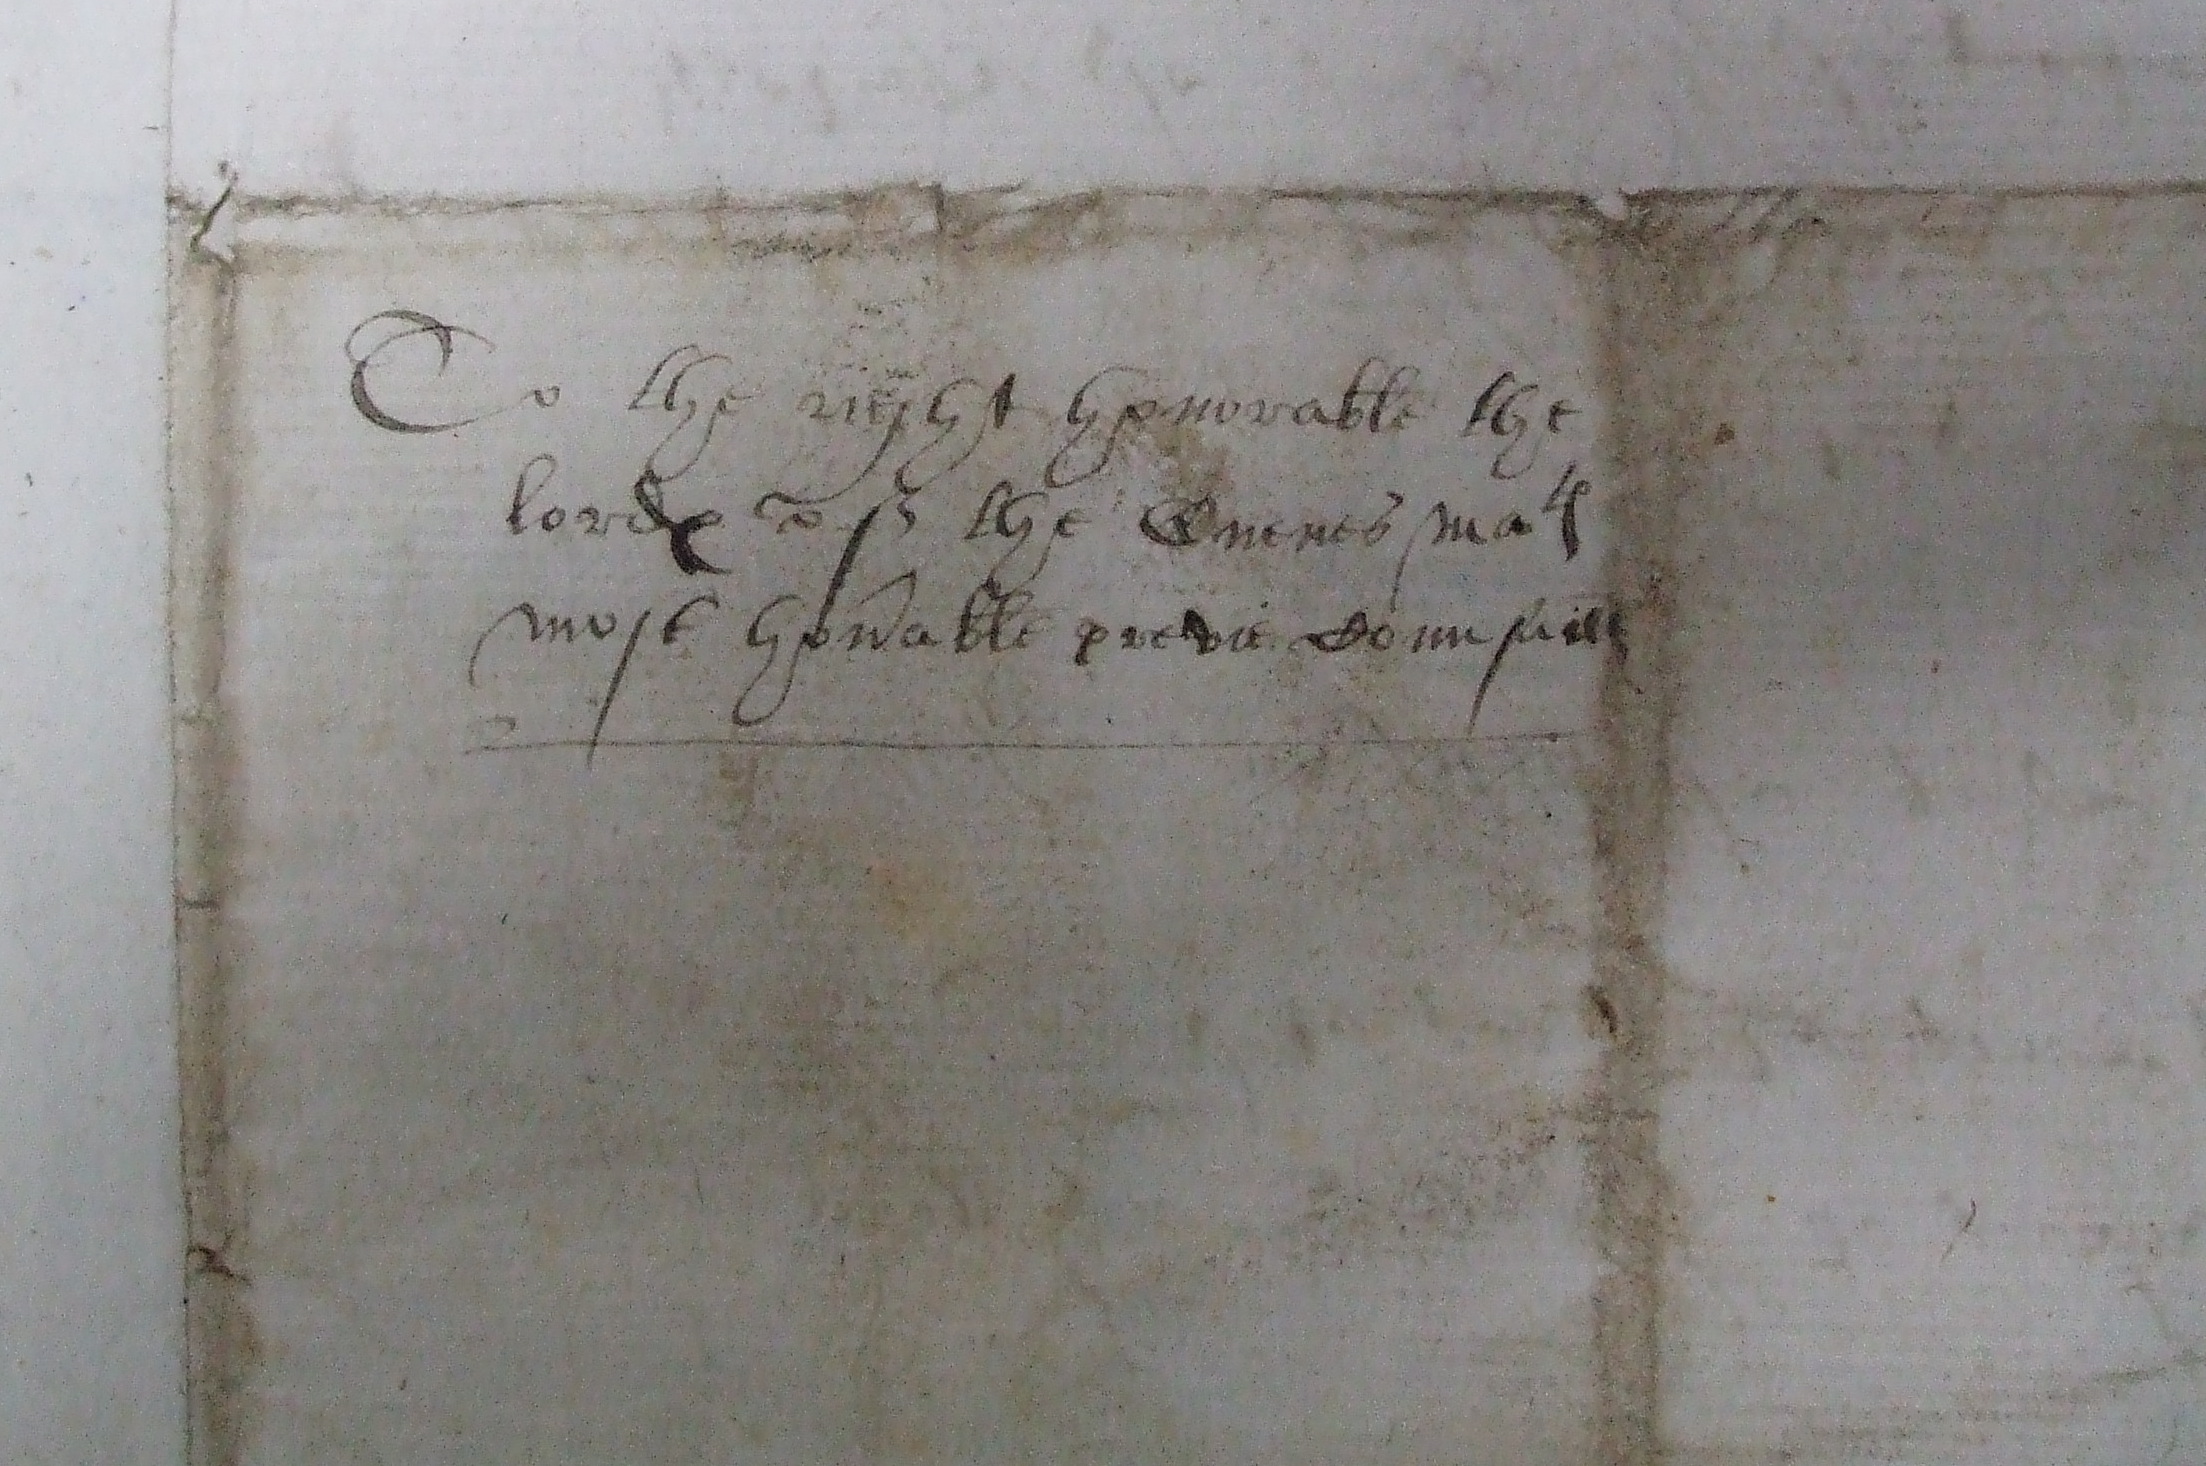 To the right honorable the
lordℯ of the Quenes maty
most honable previe Counsaill